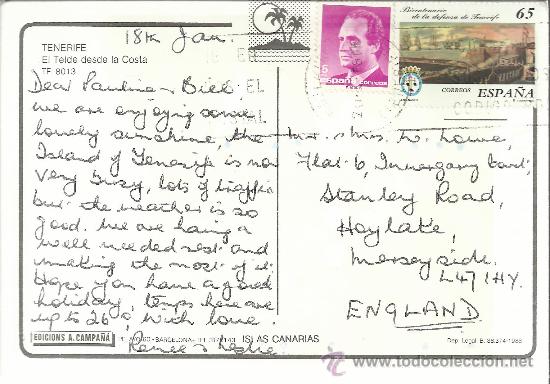 18th Jan.
TENERIFE
El Teide desde la Costa
TF 8013
Dear Pauline & Bill
we are enjoying some
lovely sunshine, the
Island of Tenerife is now
very busy, lots of traffic
but the weather is so
good. We are having a
well needed rest and
making the most of it.
Hope you have a good
holiday, temps here are
up to 26°, with love.
Renee & Leslie
5
ESPAÑA
correos
Bicentenario
de la defensa de Tenerife
65
CORREOS
ESPAÑA
Mr. & Mrs. W. Lowe,
Flat 6, Invergarry Court,
Stanley Road,
Hoylake,
Merseyside.
L47 1HY.
ENGLAND
EDICIONS A. CAMPAÑÁ
BARCELONA
ISLAS CANARIAS
Dep. Legal B. 38.374-1988
todocoleccion